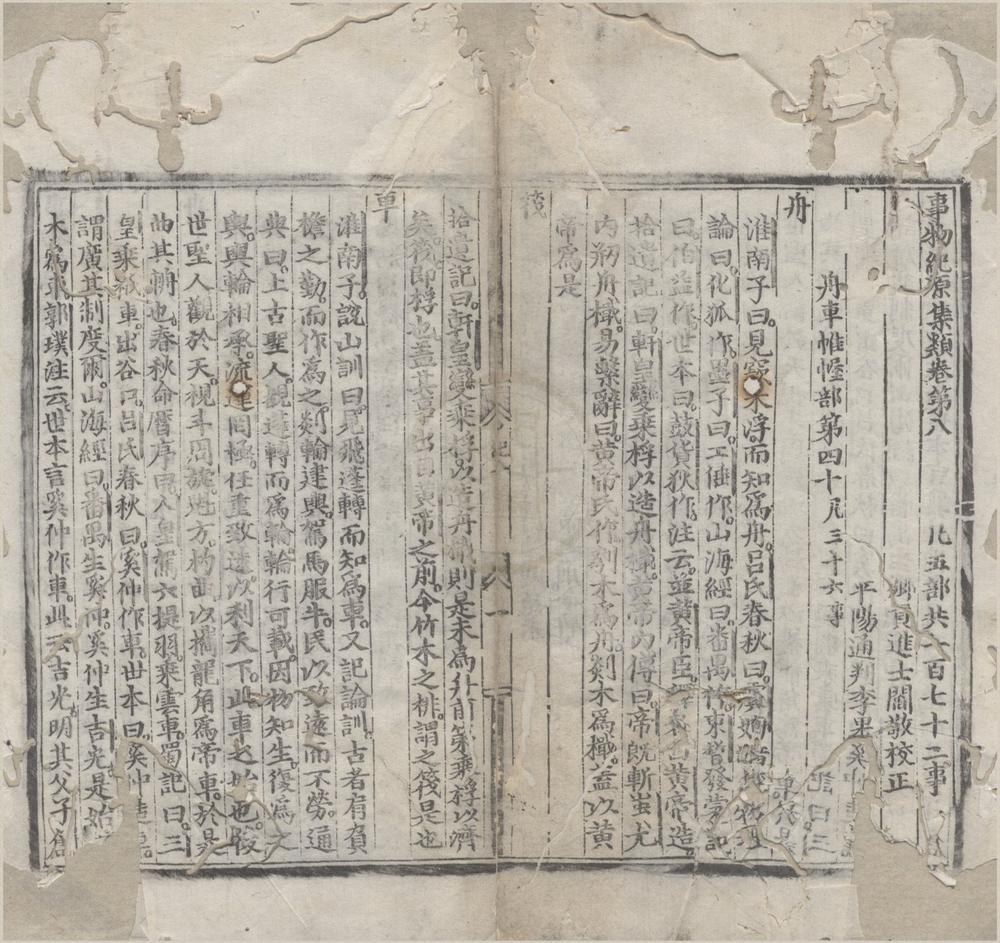 事物紀原集類卷第八 凡五部共一百七十二事
鄉貢進士閻敬校正
平陽通判李果
舟車帷幄部第四十凡三十六事
舟
淮南子曰見窾木浮而知為舟吕氏春秋曰虞姁
論曰化狐作墨子曰工倕作山海經曰番禺作束晳發蒙記
曰伯益作世本曰鼓貨狄作注云並黄帝臣黄帝造
拾遺記曰軒皇變乗桴以造舟檝黄帝内傳曰帝既斬蚩尤
内刱舟檝易繫辭曰黄帝氏作刳木為舟剡木為檝蓋以黄
帝為是
筏
拾遺記曰軒皇變乗桴以造舟檝則是未為舟前第乗桴以濟
矣筏即桴也蓋其事出自黄帝之前今竹木之棑謂之筏是也
車
淮南子説山訓曰見飛蓬轉而知為車又記論訓古者有負
檐之勤而作為之剡輪建輿駕馬服牛民以致逺而不勞通
典曰上古聖人覩蓬轉而為輪輪行可載因物知生復為之
輿輿輪相承流運罔極任重致逺以利天下此車之始也後
世聖人觀於天視斗周旋魁方杓曲以攜龍角為帝車於是
曲其輈也春秋命曆序曰人皇駕六提羽乗雲車蜀記曰三
皇乗祗車出谷口吕氏春秋曰奚仲作車世本曰奚仲
謂廣其制度爾山海經曰番禺生奚仲奚仲生吉光是始
木為車郭璞注云世本言奚仲作車此云吉光明其父子創